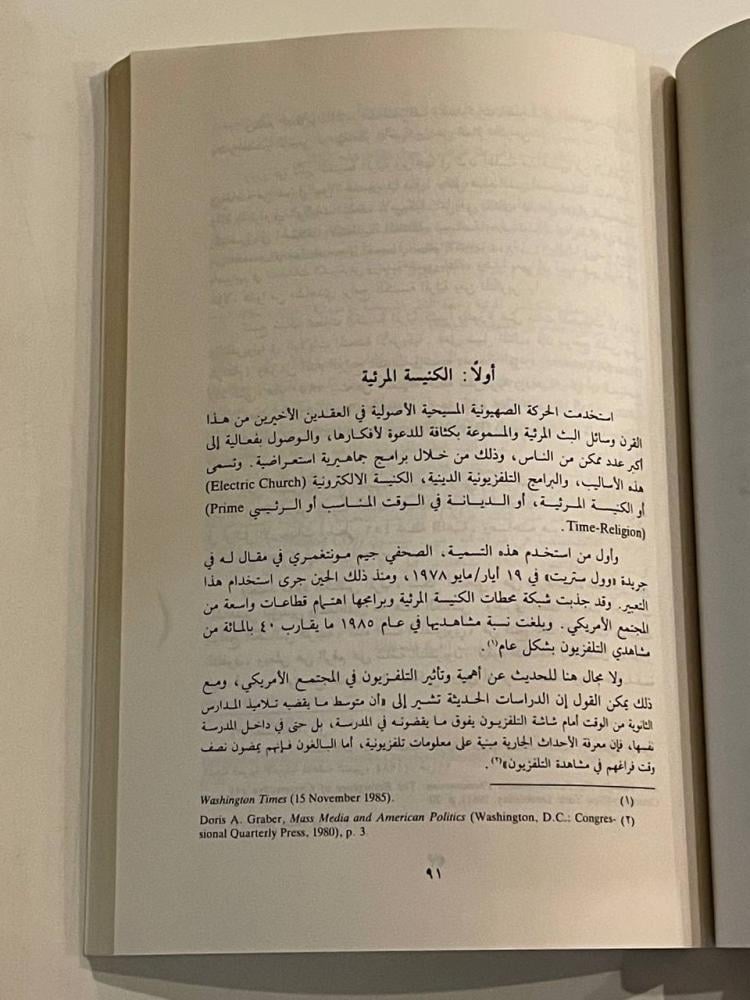 أولاً: الكنيسة المرئية
استخدمت الحركة الصهيونية المسيحية الأصولية في العقدين الأخيرين من هذا
القرن وسائل البث المرئية والمسموعة بكثافة للدعوة لأفكارها، والوصول بفعالية إلى
أكبر عدد ممكن من الناس، وذلك من خلال برامج جماهيرية استعراضية. وتسمى
هذه الأساليب، والبرامج التلفزيونية الدينية، الكنيسة الالكترونية (Electric Church)
أو الكنيسة المرئية، أو الديانة في الوقت المناسب أو الرئيسي (Prime
Time-Religion).
وأول من استخدم هذه التسمية، الصحفي جيم مونتغمري في مقال له في
جريدة «وول ستريت» في ١٩ أيار/مايو ١٩٧٨، ومنذ ذلك الحين جرى استخدام هذا
التعبير. وقد جذبت شبكة محطات الكنيسة المرئية وبرامجها اهتمام قطاعات واسعة من
المجتمع الأمريكي. وبلغت نسبة مشاهديها في عام ١٩٨٥ ما يقارب ٤٠ بالمائة من
مشاهدي التلفزيون بشكل عام(١).
ولا مجال هنا للحديث عن أهمية وتأثير التلفزيون في المجتمع الأمريكي، ومع
ذلك يمكن القول إن الدراسات الحديثة تشير إلى «أن متوسط ما يقضيه تلاميذ المدارس
الثانوية من الوقت أمام شاشة التلفزيون يفوق ما يقضونه في المدرسة، بل حتى في داخل المدرسة
نفسها، فإن معرفة الأحداث الجارية مبنية على معلومات تلفزيونية، أما البالغون فإنهم يمضون نصف
وقت فراغهم في مشاهدة التلفزيون»(٢).
(١) Washington Times (15 November 1985).
(٢) Doris A. Graber, Mass Media and American Politics (Washington, D.C.: Congres-
sional Quarterly Press, 1980), p. 3
٩١